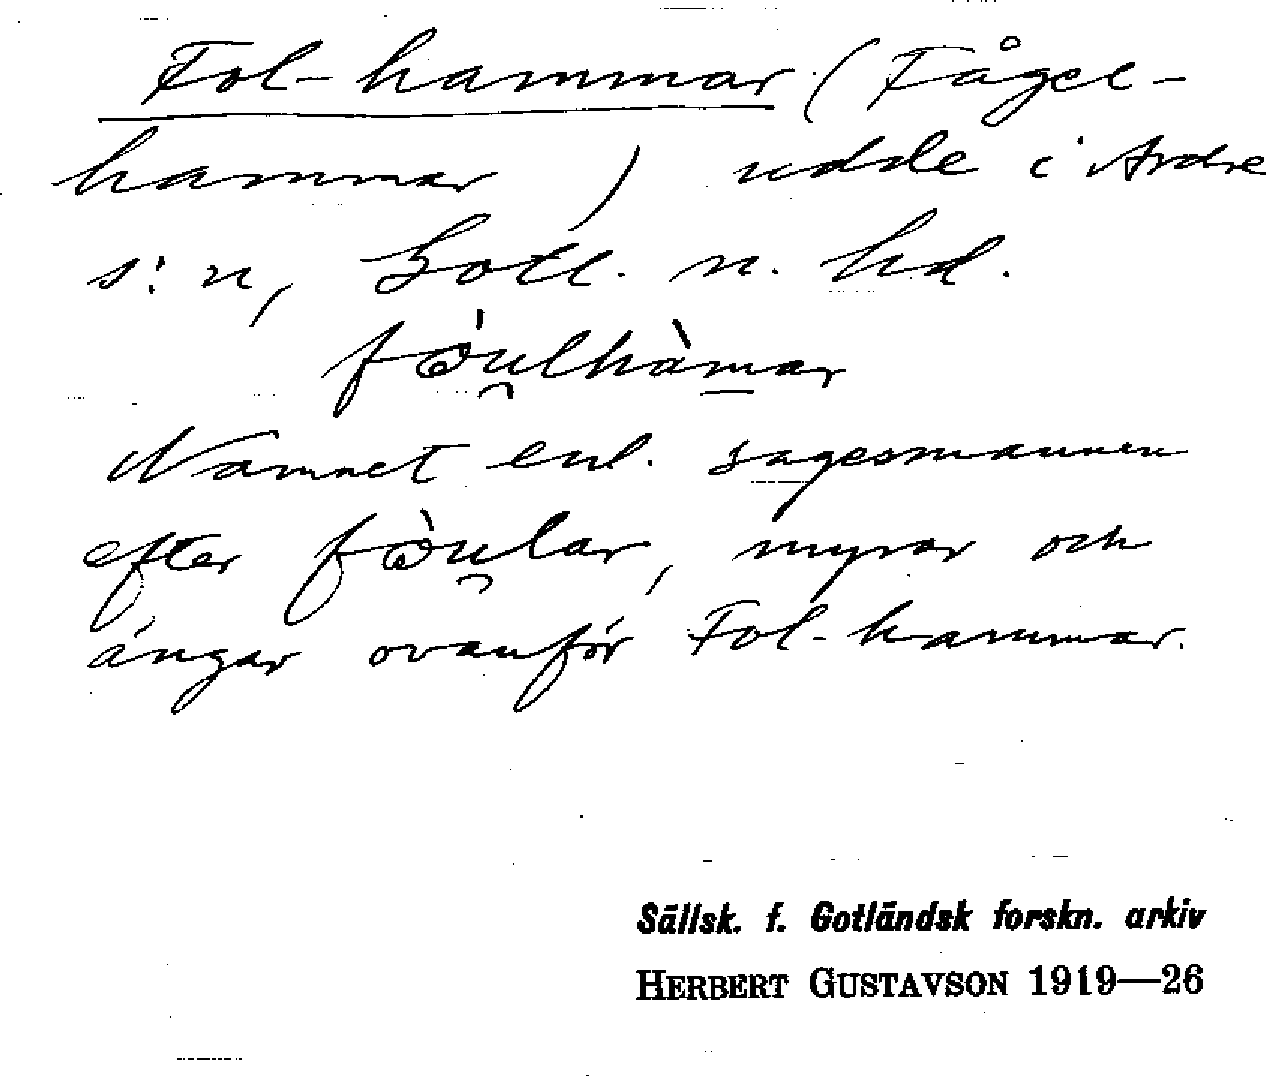 Fol-hammar (Fågel-
hammar) udde i Ardre
s:n, Gotl. n. hd.
fo̍u̯lhàm̲ar
Namnet enl. sagesmannen
efter fòu̯lar, myrar och
ängar ovanför Fol-hammar.
Sällsk. f. Gotländsk forskn. arkiv
HERBERT GUSTAVSON 1919—26